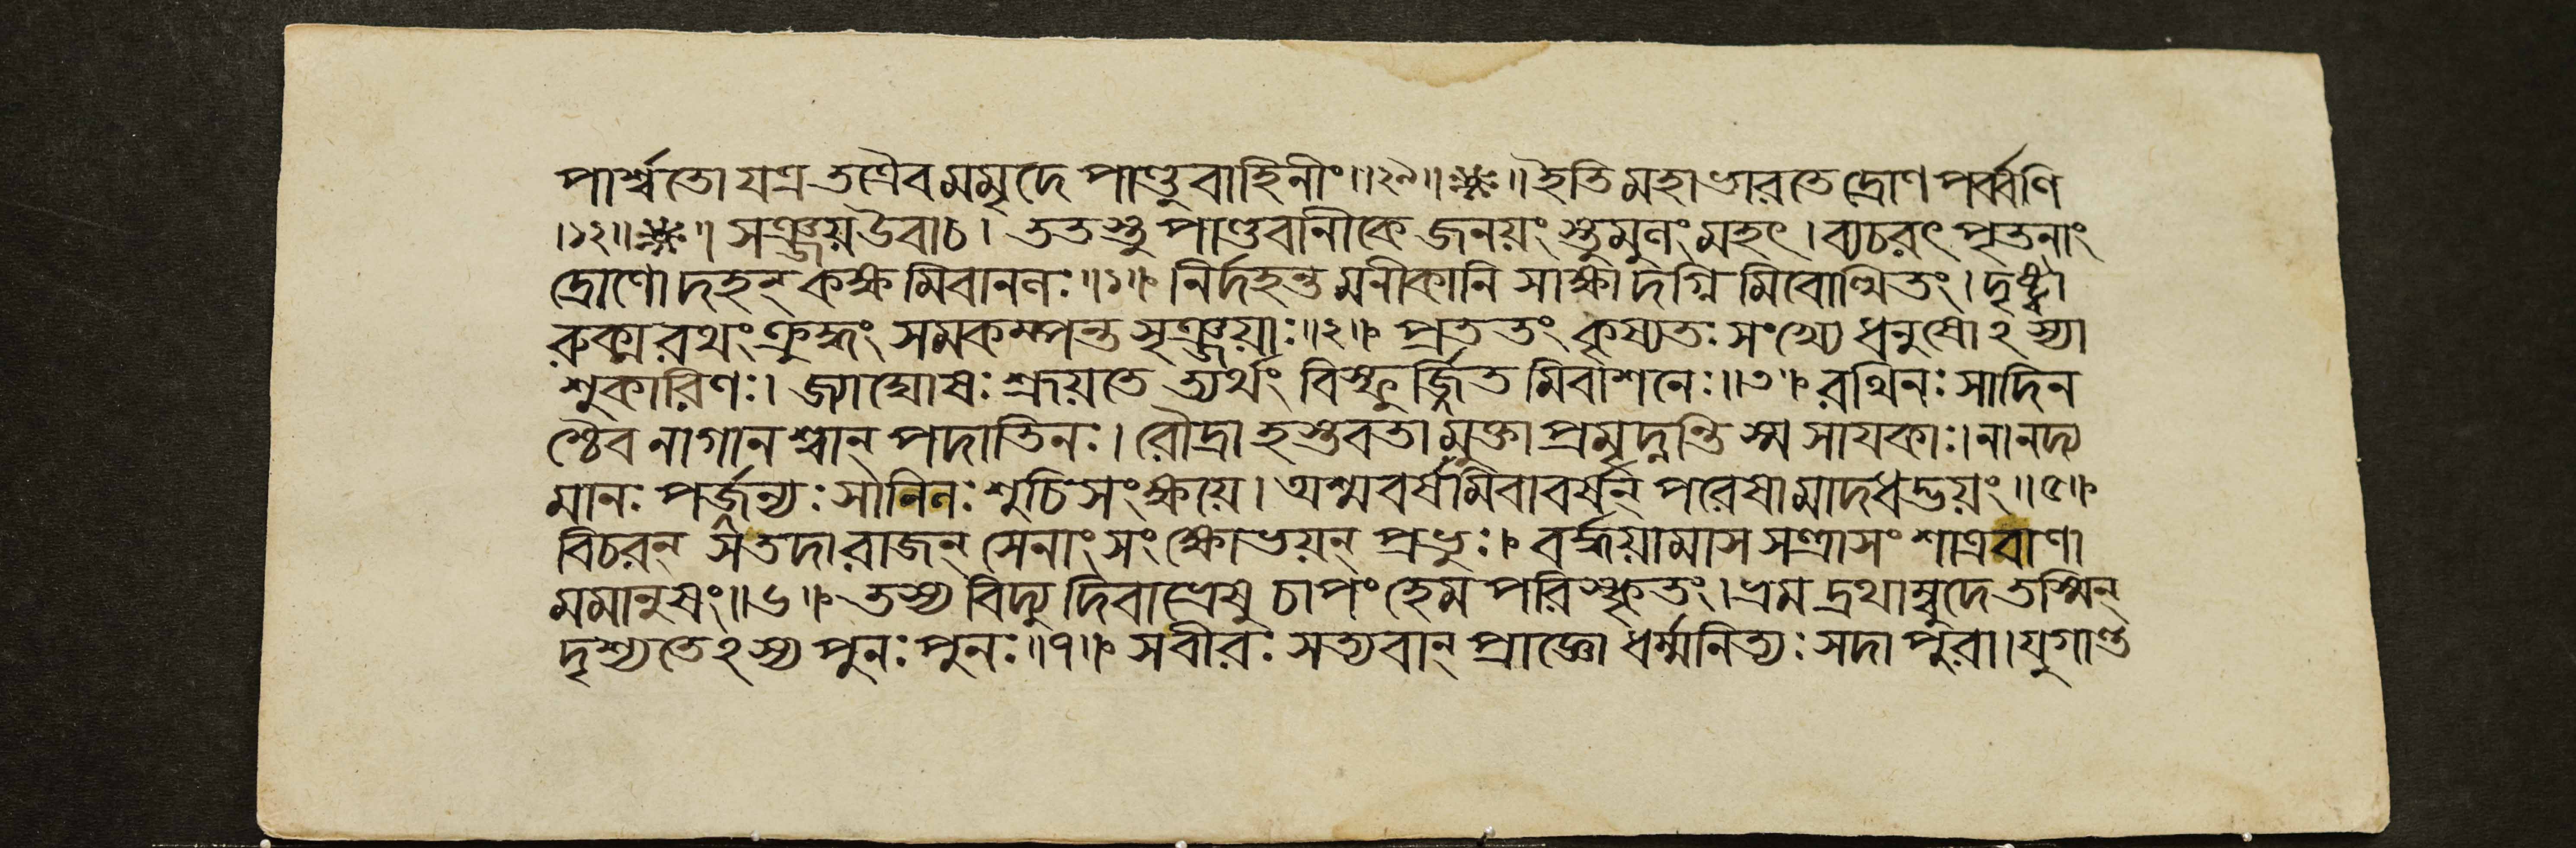 পার্শ্বতো যত্র তত্রৈব মমৃদে পাণ্ডুবাহিনীং॥২৯॥❈॥ ইতি মহাভারতে দ্রোণপর্ব্বণি
।১২॥❈॥ সঞ্জয় উবাচ। ততস্তু পাণ্ডবানীকে জনয়ংস্তুমুলং মহৎ। ব্যচরৎ পৃতনাং
দ্রোণো দহন্ কক্ষমিবানলঃ॥১॥ নির্দহন্তমনীকানি সাক্ষাদগ্নিমিবোত্থিতং। দৃষ্ট্বা
রুক্মরথং ক্রুদ্ধং সমকম্পন্ত সৃঞ্জয়াঃ॥২॥ প্রততং কৃষ্যতঃ সংখ্যে ধনুষোঽস্যা
শুকারিণঃ। জ্যাঘোষঃ শ্রূয়তেত্যর্থং বিস্ফূর্জ্জিতমিবাশনেঃ॥৩॥ রথিনঃ সাদিন
শ্চৈব নাগানশ্বান্ পদাতিনঃ। রৌদ্রা হস্তবতা মুক্তা প্রমৃদ্নন্তি স্ম সাযকাঃ। নানদ্য
মানঃ পর্জ্জন্যঃ সানিলঃ শুচিসংক্ষয়ে। অশ্মবর্ষমিবাবর্ষন্ পরেষামাদধদ্ভয়ং॥৫॥
বিচরন্ স তদা রাজন্ সেনাং সংক্ষোভয়ন্ প্রভুঃ। বর্দ্ধয়ামাস সন্ত্রাসং শাত্রবাণা
মমানুষং॥৬॥ তস্য বিদ্যুদিবাভ্রেষু চাপং হেমপরিষ্কৃতং। ভ্রমদ্রথাম্বুদে তস্মিন্
দৃশ্যতেঽস্য পুনঃ পুনঃ॥৭॥ স বীরঃ সত্যবান্ প্রাজ্ঞো ধর্ম্মনিত্যঃ সদা পুরা। যুগান্ত